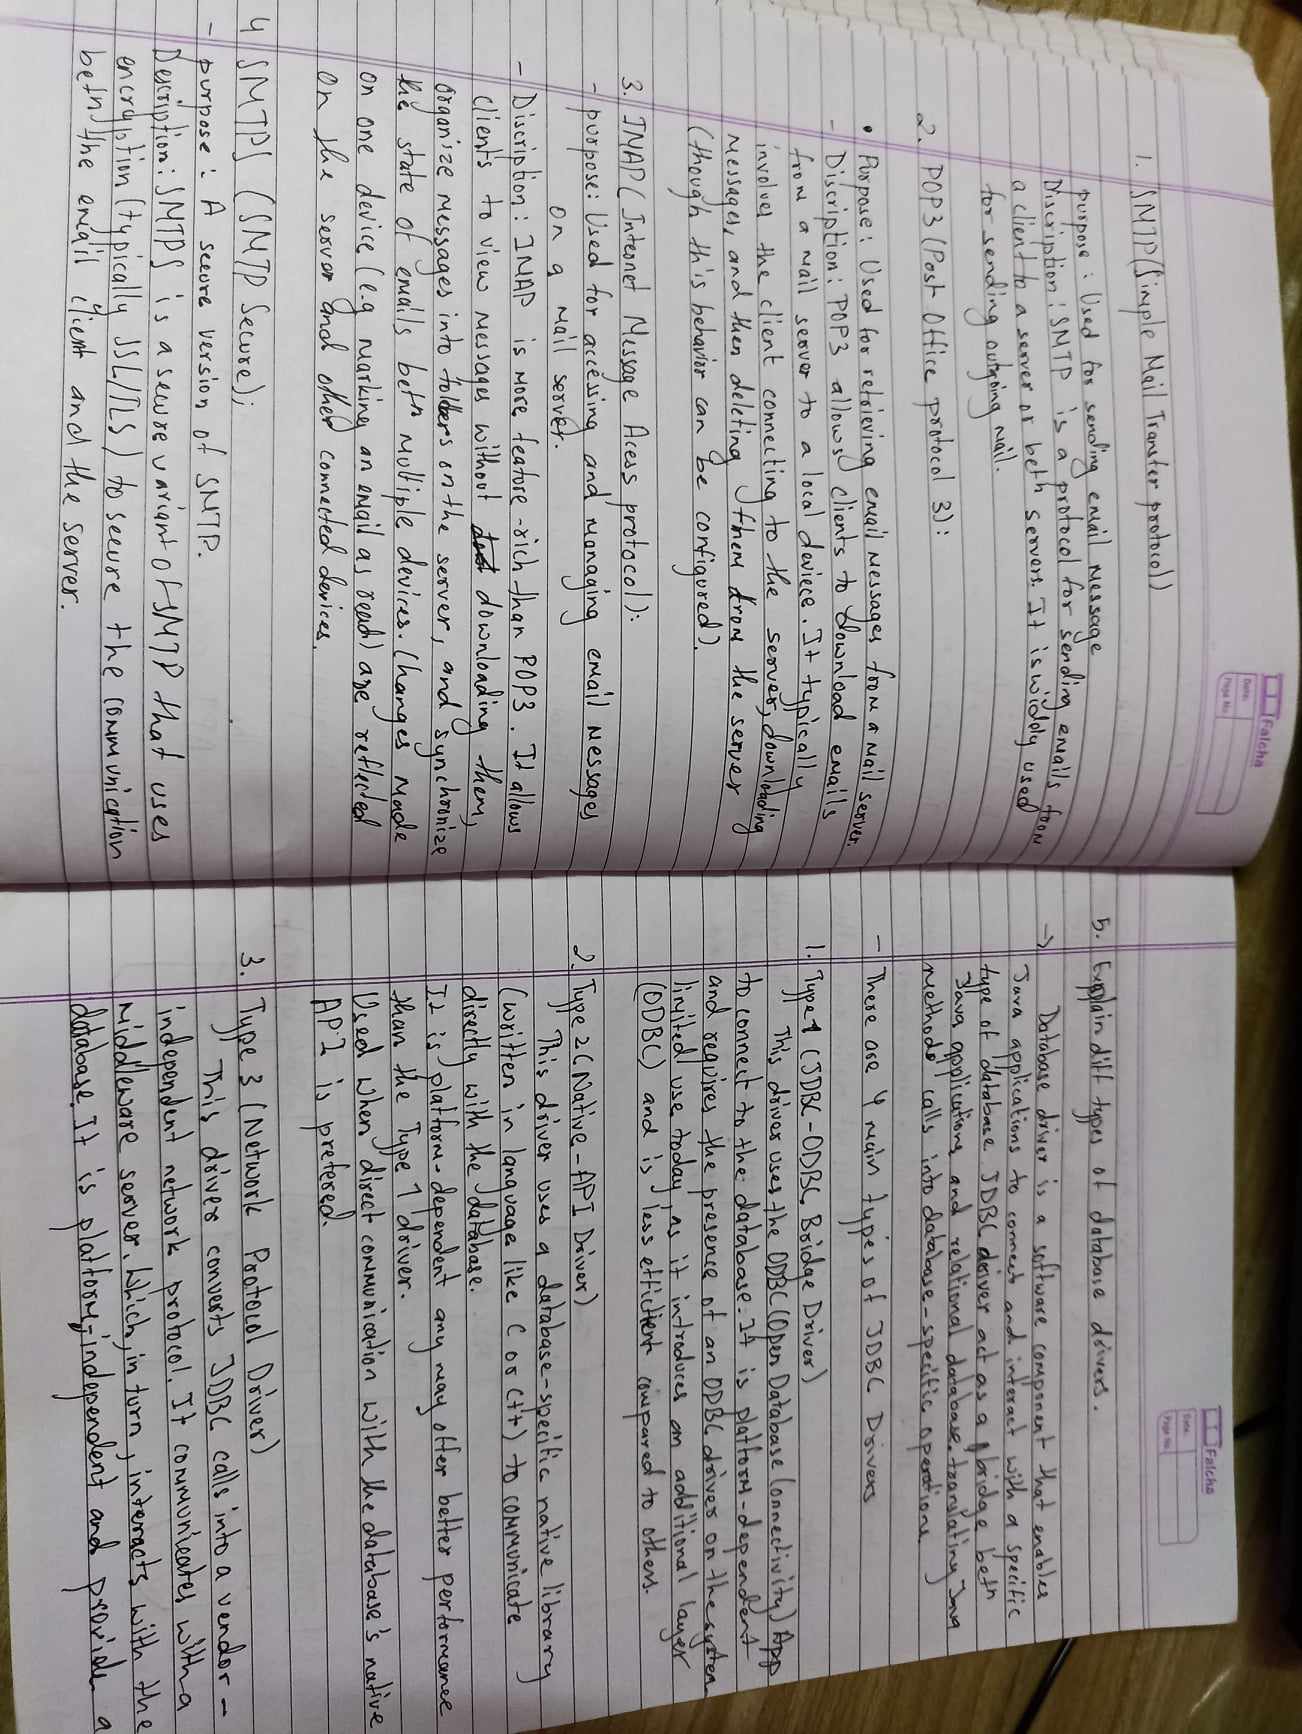 Falcha
Date:
Page No:
1. SMTP(Simple Mail Transfer protocol)
purpose : Used for sending email message
Discription : SMTP is a protocol for sending emails from
a client to a server or betn servers. It is widdly used
for sending outgoing mail.
2. POP3 (Post Office protocol 3):
• Purpose : Used for retrieving email messages from a mail server.
- Discription : POP3 allows clients to download emails
from a mail server to a local deviece. It typically
involves the client connecting to the server, downloading
messages, and then deleting them from the server
(though this behavior can be configured).
3. IMAP ( Internet Message Acess protocol):
- purpose : Used for accessing and managing email messages
on a mail server.
- Discription : IMAP is more feature-rich than POP3. It allows
clients to view messages without downloading them,
organize messages into folders on the server, and synchronize
the state of emails betn multiple devices. Changes made
on one device (e.g marking an email as read) are reflected
on the server and other connected devices.
4 SMTPS (SMTP Secure);
- purpose : A secure version of SMTP.
Description : SMTPS is a secure variant of SMTP that uses
encryption (typically SSL/TLS) to secure the communication
betn the email client and the server.
Falcha
Date:
Page No:
5. Explain diff types of database drivers.
→ Database driver is a software component that enables
Java applications to connect and interact with a specific
type of database JDBC driver act as a bridge betn
Java applications and relational database, translating Java
methods calls into database-specific operations.
- There are 4 main types of JDBC Drivers
1. Type 1 (JDBC-ODBC Bridge Driver)
This driver uses the ODBC (Open Database Connectivity) App
to connect to the database. It is platform-dependent
and requires the presence of an ODBC driver on the system
limited use today as it introduces an additional layer
(ODBC) and is less effictient compared to others.
2. Type 2 (Native-API Driver)
This driver uses a database-specific native library
(written in language like C or C++) to communicate
directly with the database.
It is platform-dependent any may offer better performance
than the Type 1 driver.
Used when direct communication with the database's native
API is prefered.
3. Type 3 (Network Protocol Driver)
This driver converts JDBC calls into a vendor-
independent network protocol. It communicates with a
middleware server. Which, in turn, interacts with the
database. It is platform-independent and provide a